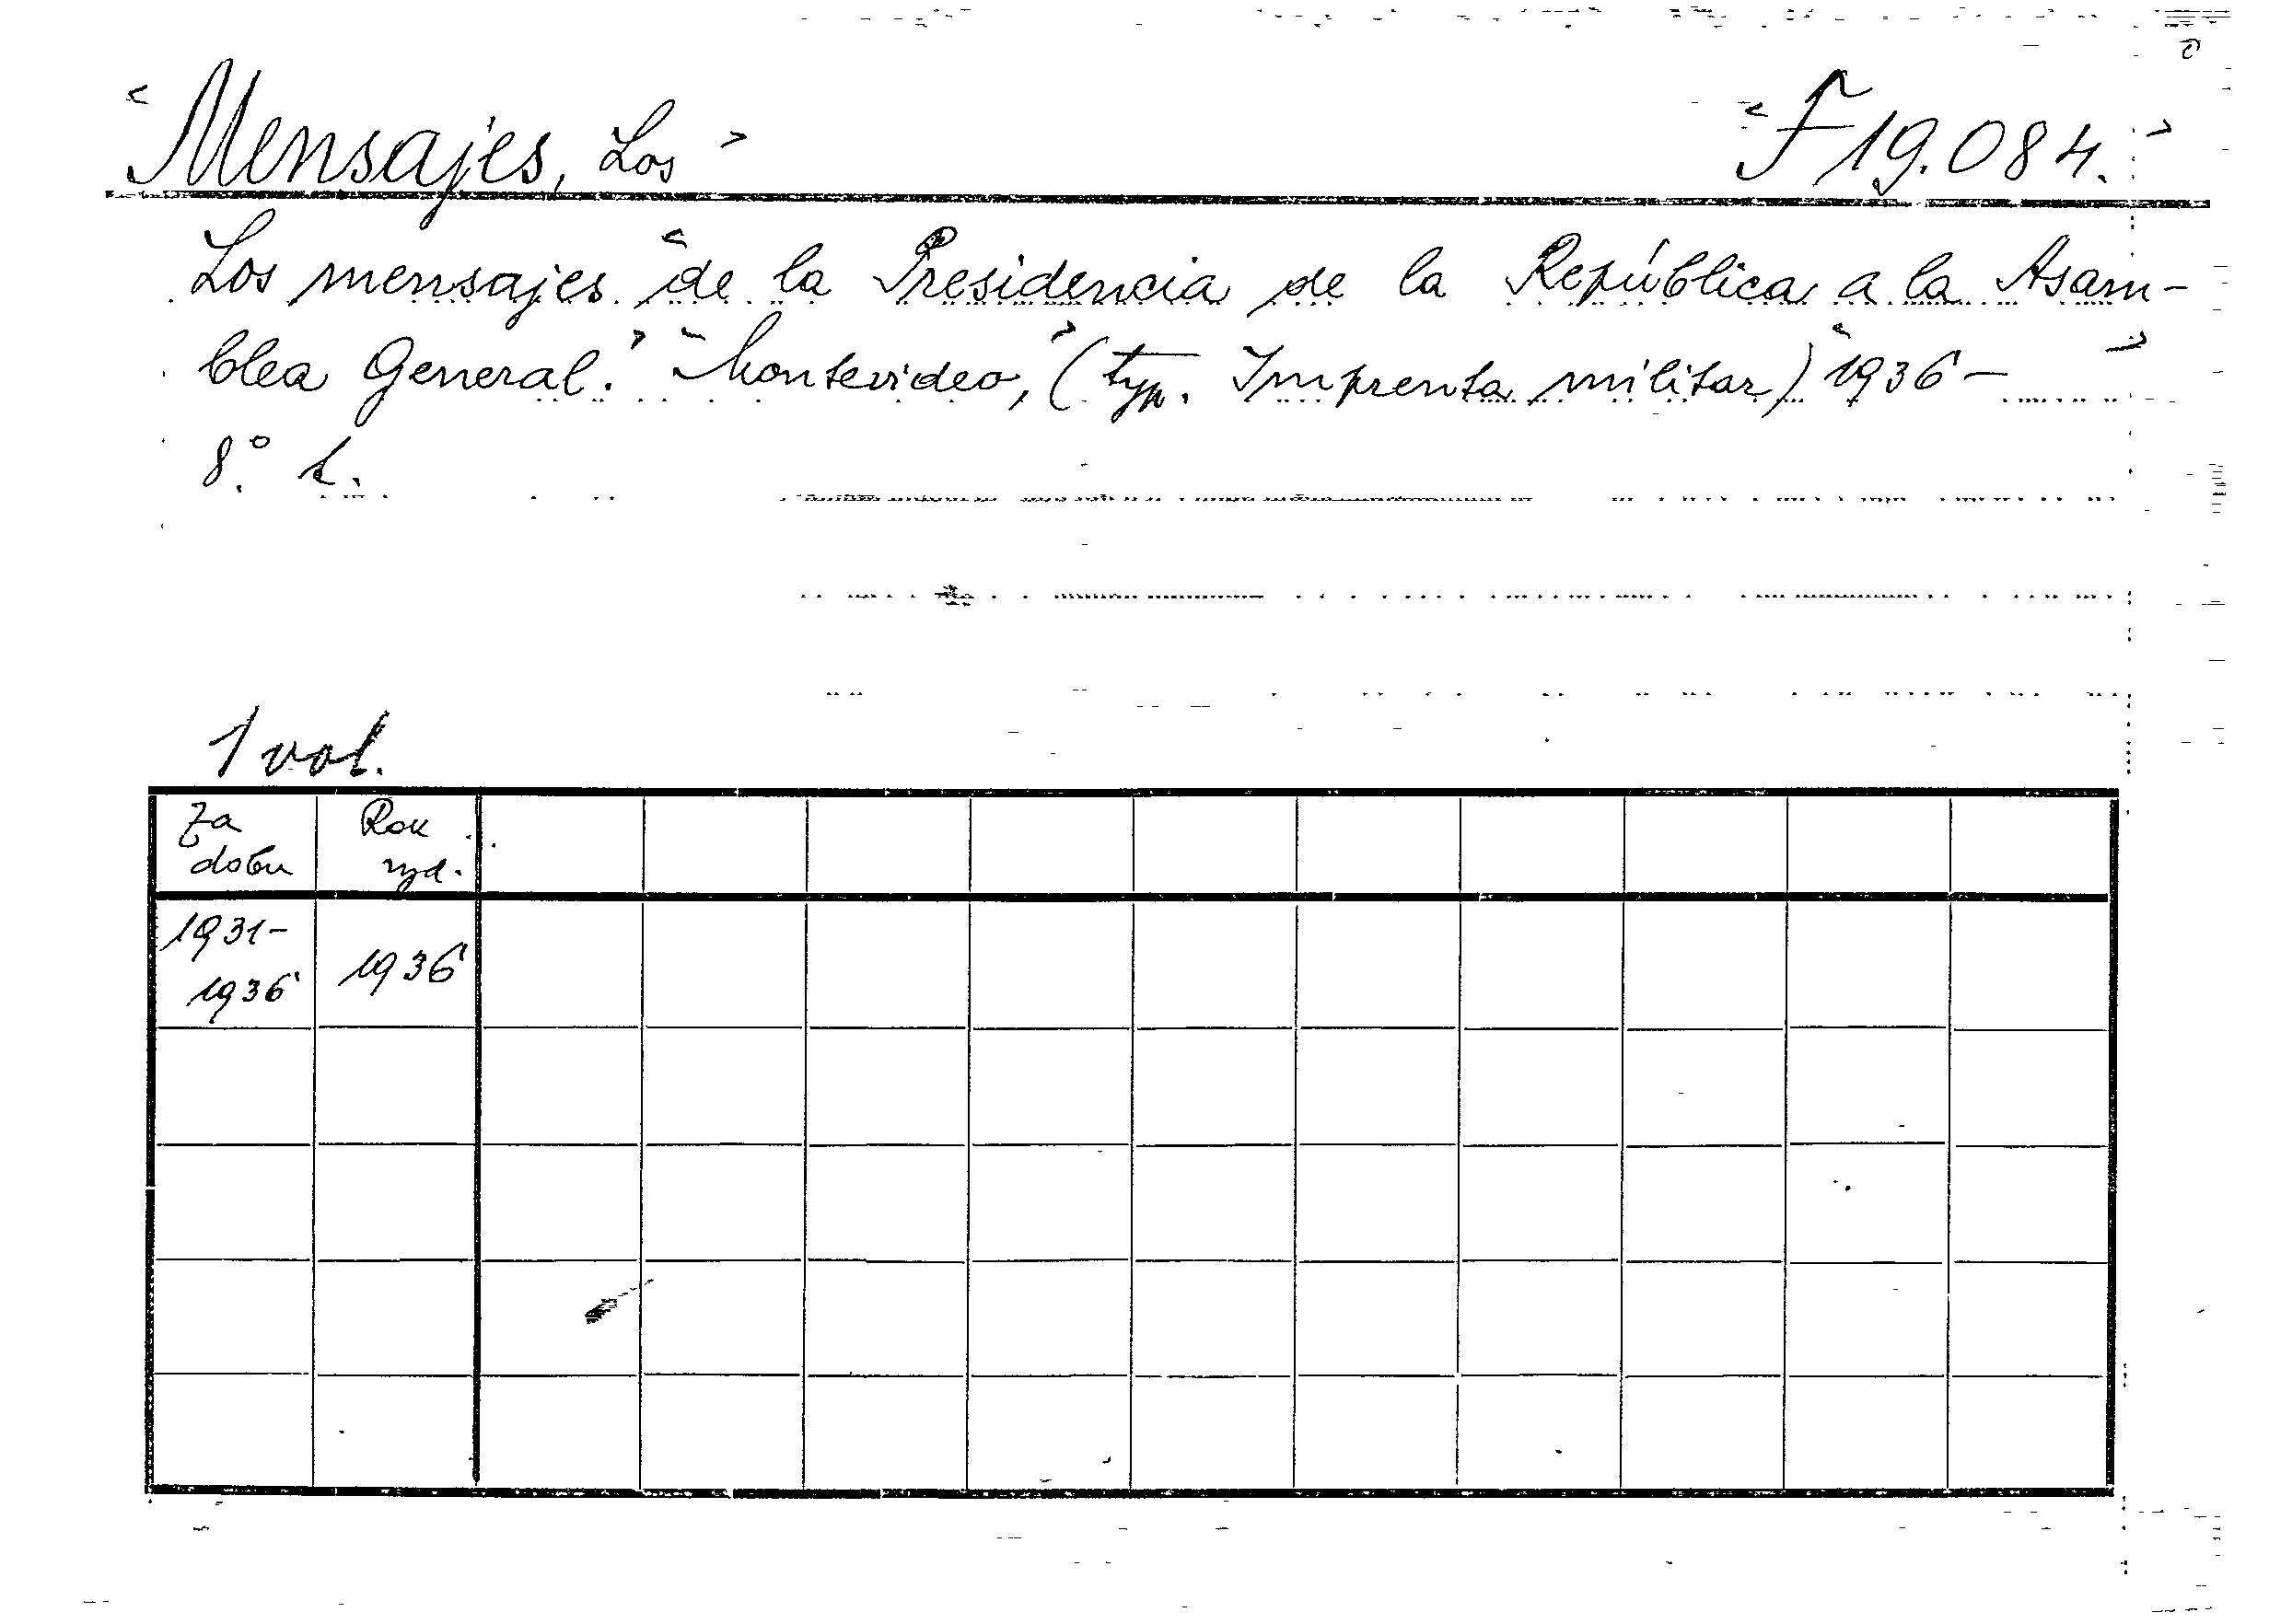 <Mensajes, Los> <F 19.084.>
Los mensajes <de la Presidencia de la República a la Asam-
blea General.> <Montevideo,> (typ. Imprenta militar) <1936 – >
8°.
1 vol.
Za dobu Rok vyd.
1931-
1936 1936